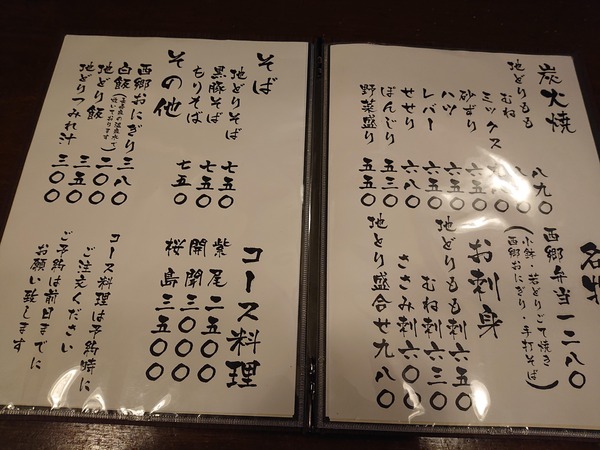 炭火焼
地どりもも 八九〇
むね
ミックス
砂ずり 五五〇
ハツ 六五〇
レバー 六五〇
せせり 六八〇
ぼんじり 五三〇
野菜盛り 五五〇
名物
西郷弁当 一二八〇
(小鉢・若どりごて焼き
西郷おにぎり・手打そば)
お刺身
地どりもも刺 六五〇
むね刺 六三〇
ささみ刺 六〇〇
地どり盛合せ 九八〇
そば
地どりそば 七五〇
黒豚そば 七五〇
もりそば 七五〇
その他
西郷おにぎり 三八〇
白飯(の温泉水で 二〇〇
炊いております)
地どり飯 三五〇
地どりつみれ汁 三〇〇
コース料理
紫尾 二五〇〇
開聞 三〇〇〇
桜島 三五〇〇
コース料理は予約時に
ご注文ください
ご予約は前日までに
お願い致します